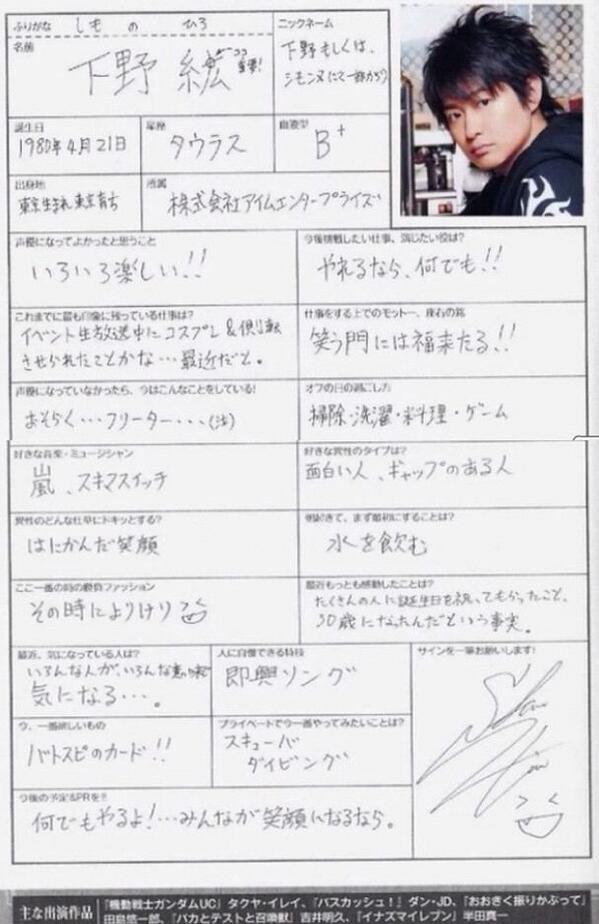 ふりがな しもの ひろ
名前
下野 紘
ニックネーム
下野もしくは、
シモンヌ(にて一部から)
誕生日
1980年4月21日
星座
タウラス
血液型
B+
出身地
東京生まれ東京育ち
所属
株式会社アイムエンタープライズ
声優になってよかったと思うこと
いろいろ楽しい!!
今後挑戦したい仕事、演じたい役は?
やれるなら、何でも!!
これまでに最も印象に残っている仕事は?
イベント生放送中にコスプレ&側転
させられたことかな…最近だと。
仕事をする上でのモットー、座右の銘
笑う門には福来たる!!
声優になっていなかったら、今はこんなことをしている!
おそらく…フリーター…(泣)
オフの日の過ごし方
掃除・洗濯・料理・ゲーム
好きな音楽・ミュージシャン
嵐、スキマスイッチ
好きな異性のタイプは?
面白い人、ギャップのある人
異性のどんな仕草にドキッとする?
はにかんだ笑顔
朝起きて、まず最初にすることは?
水を飲む
ここ一番の時の勝負ファッション
その時によりけり
最近もっとも感動したことは?
たくさんの人に誕生日を祝ってもらったこと、
30歳になったんだという事実。
最近、気になっている人は?
いろんな人が、いろんな意味で
気になる…。
人に自慢できる特技
即興ソング
サインを一筆お願いします!
今、一番欲しいもの
バトスピのカード!!
プライベートで今一番やってみたいことは?
スキューバ
ダイビング
今後の予定&PRを!!
何でもやるよ!…みんなが笑顔になるなら。
主な出演作品
『機動戦士ガンダムUC』タクヤ・イレイ、『バスカッシュ!』ダン・JD、『おおきく振りかぶって』
田島悠一郎、『バカとテストと召喚獣』吉井明久、『イナズマイレブン』半田真一